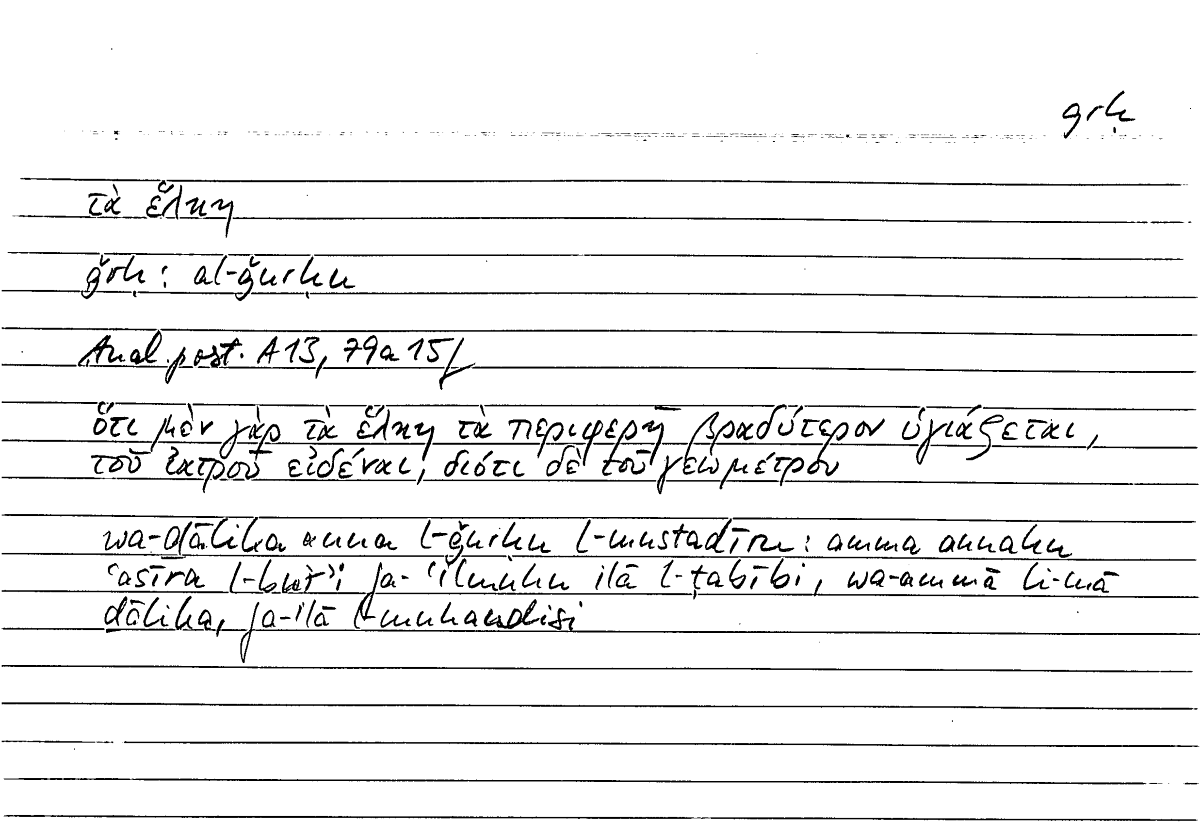 grḥ
τὰ ἕλκη
ǧrḥ: al-ǧurḥu
Anal. post. A 13, 79a 15f
ὅτι μὲν γὰρ τὰ ἕλκη τὰ περιφερῆ βραδύτερον ὑγιάζεται,
τοῦ ἰατροῦ εἰδέναι, διότι δὲ τοῦ γεωμέτρου
wa-ḏālika anna l-ǧurḥu l-mustadīru: amma annahu
ʿasīra l-burʾi fa-ʿilmuhu ilā l-ṭabībi, wa-ammā li-mā
ḏālika, fa-ilā l-muhandisi